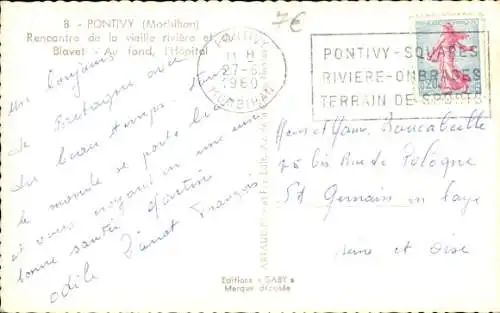 8 - PONTIVY (Morbihan)
Rencontre de la vieille rivière et
Blavet - Au fond, l'Hôpital
7€
PONTIVY
11 H
27-
1960
MORBIHAN
PONTIVY - SQUARES
RIVIERE - OMBRAGES
TERRAIN DE SPORTS
un bonjour
de Bretagne avec
du beau temps. tout
le monde se porte bien
et vous croyant en une
bonne santé Martine
odile François
rue de Pologne
St Germain en Laye
Seine et Oise
Editions "GABY"
Marque déposée